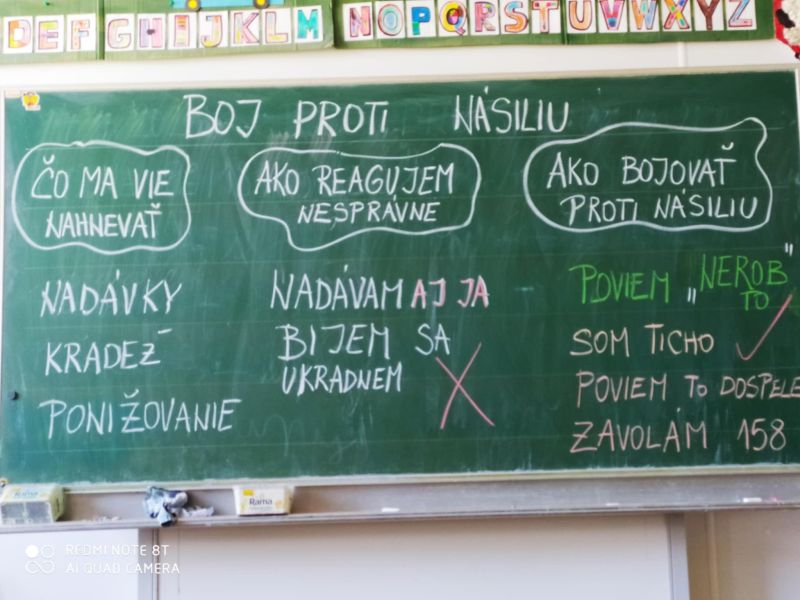 DEFGHIJKLM NOPQRSTUVWXYZ
BOJ PROTI NÁSILIU
ČO MA VIE
NAHNEVAŤ
AKO REAGUJEM
NESPRÁVNE
AKO BOJOVAŤ
PROTI NÁSILIU
NADÁVKY
KRADEŽ
PONIŽOVANIE
NADÁVAM AJ JA
BIJEM SA
UKRADNEM
POVIEM „NEROB
TO"
SOM TICHO
POVIEM TO DOSPELE
ZAVOLÁM 158
Rama
REDMI NOTE 8T
AI QUAD CAMERA